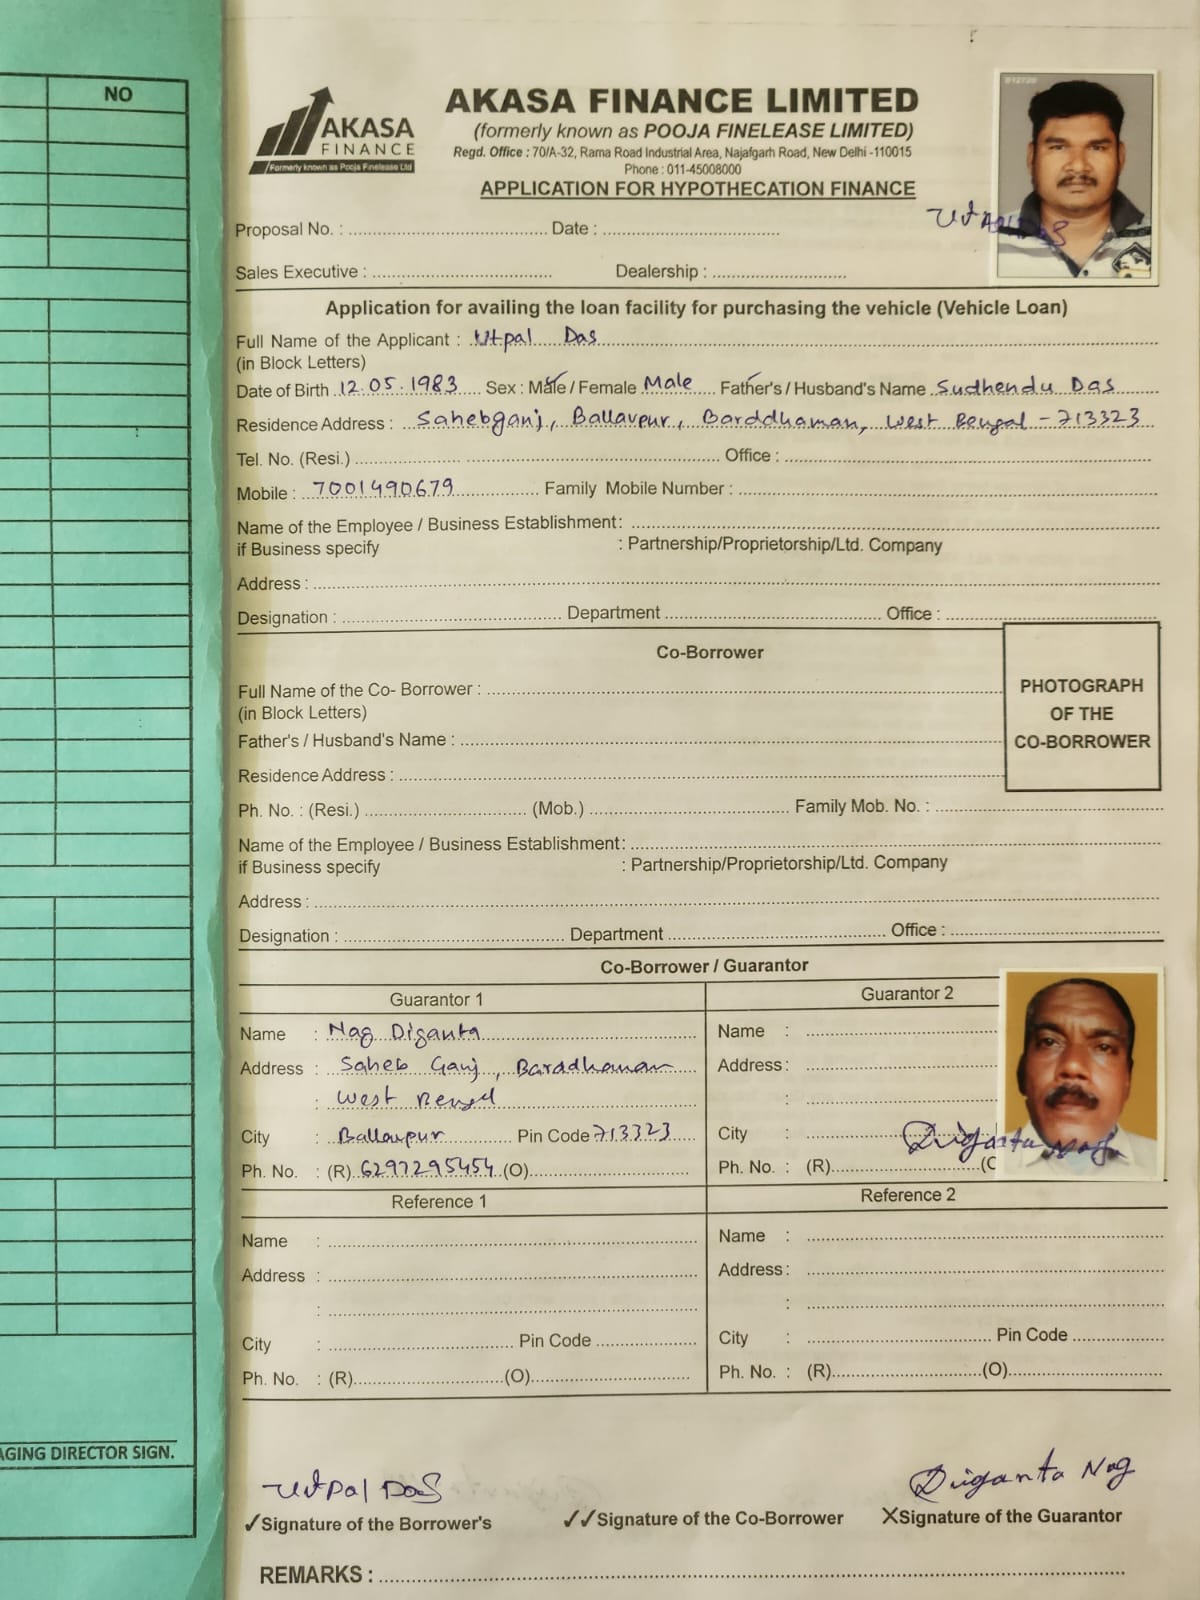 NO
AKASA
FINANCE
Formerly known as Pooja Finelease Ltd
AKASA FINANCE LIMITED
(formerly known as POOJA FINELEASE LIMITED)
Regd. Office : 70/A-32, Rama Road Industrial Area, Najafgarh Road, New Delhi -110015
Phone : 011-45008000
APPLICATION FOR HYPOTHECATION FINANCE
Utpal Das
Proposal No. : Date :
Sales Executive : Dealership :
Application for availing the loan facility for purchasing the vehicle (Vehicle Loan)
Full Name of the Applicant : Utpal Das
(in Block Letters)
Date of Birth 12.05.1983 Sex : Male / Female Male Father's / Husband's Name Sudhendu Das
Residence Address : Sahebganj, Ballavpur, Barddhaman, West Bengal - 713323
Tel. No. (Resi.) Office :
Mobile : 7001490679 Family Mobile Number :
Name of the Employee / Business Establishment:
if Business specify : Partnership/Proprietorship/Ltd. Company
Address :
Designation : Department Office :
Co-Borrower
Full Name of the Co- Borrower :
(in Block Letters)
PHOTOGRAPH
OF THE
CO-BORROWER
Father's / Husband's Name :
Residence Address :
Ph. No. : (Resi.) (Mob.) Family Mob. No. :
Name of the Employee / Business Establishment:
if Business specify : Partnership/Proprietorship/Ltd. Company
Address :
Designation : Department Office :
Co-Borrower / Guarantor
Guarantor 1 Guarantor 2
Name : Nag Diganta Name :
Address : Saheb Ganj, Baradhaman Address:
: West Bengal :
City : Ballavpur Pin Code 713323 City :
Diganta Nag
Ph. No. : (R) 6297295454 (O) Ph. No. : (R) (O
Reference 1 Reference 2
Name : Name :
Address : Address:
: :
City : Pin Code City : Pin Code
Ph. No. : (R) (O) Ph. No. : (R) (O)
AGING DIRECTOR SIGN.
Utpal Das Diganta Nag
✓Signature of the Borrower's ✓✓Signature of the Co-Borrower ✕Signature of the Guarantor
REMARKS :